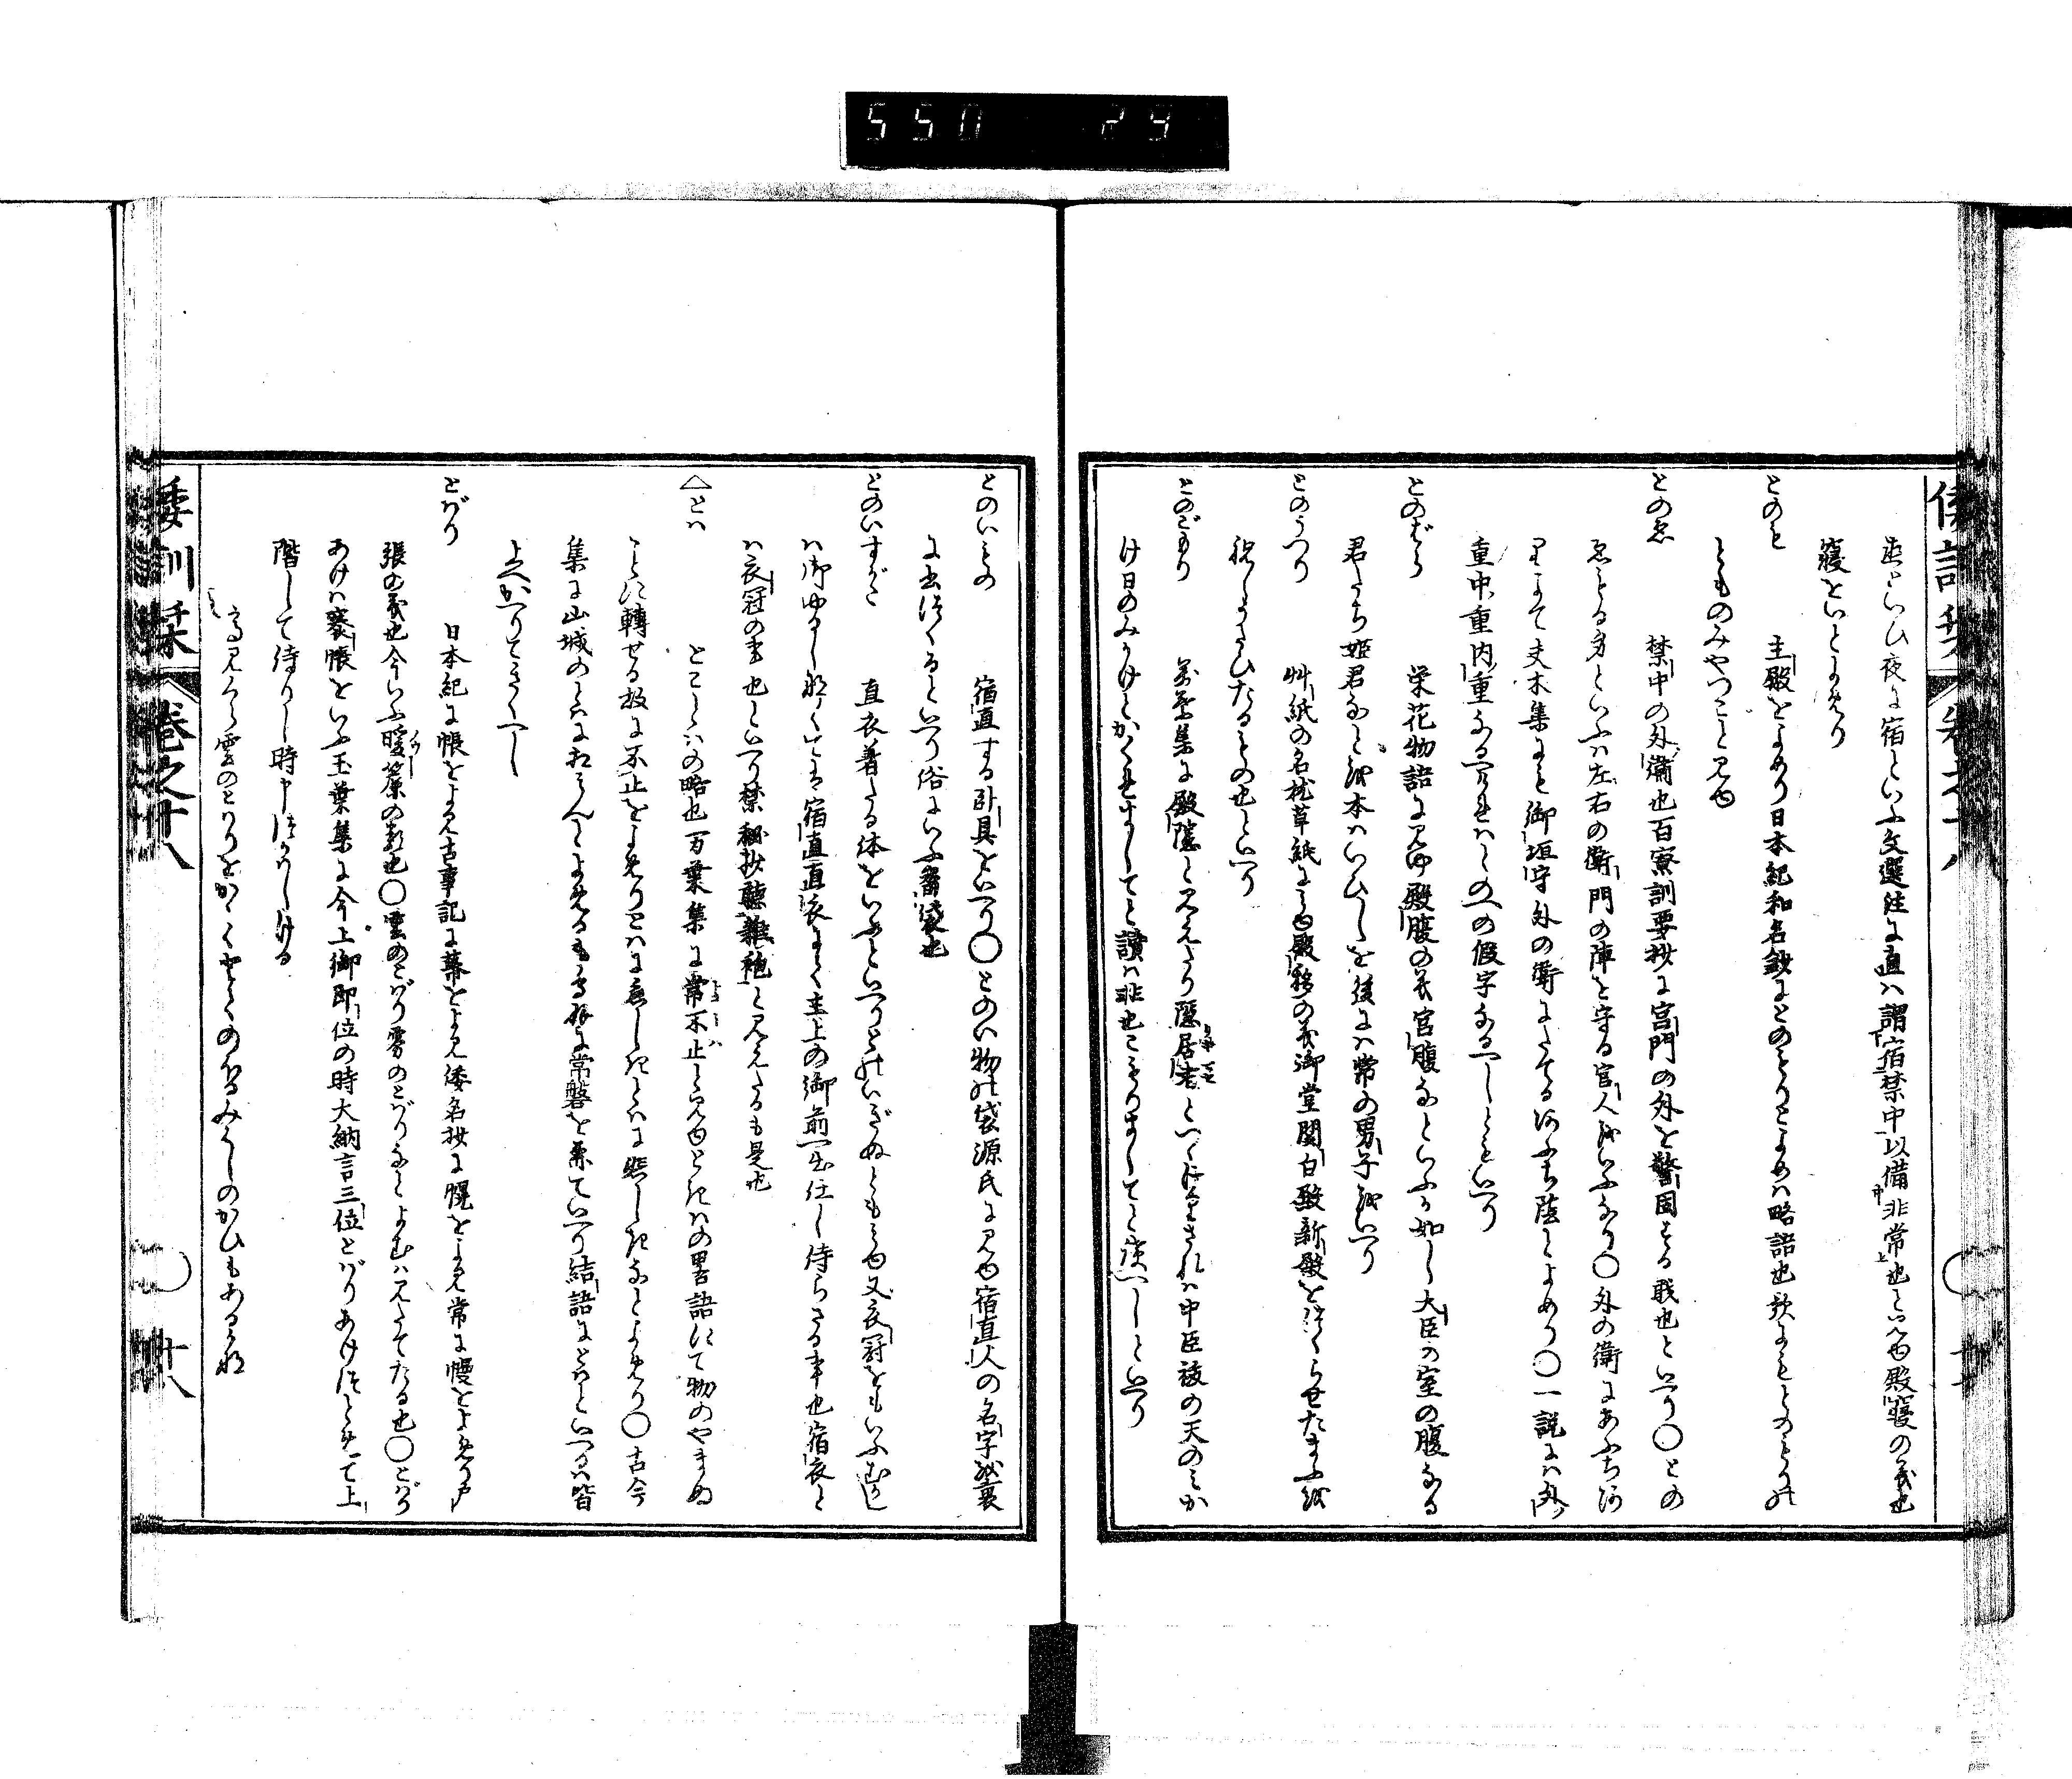 550 29
直といひ夜に宿といふ文選注に直ハ謂宿禁中以備非常也と見ゆ殿寝の義也
寝をいとよめり
とのも 主殿をよめり日本紀和名鈔にとのもりとよめハ略語也歌にもとのもりの
とものみやつことと見ゆ
とのゑ 禁中の外衛也百寮訓要抄に宮門の外を警固する職也といへり〇との
ゑもる身といふハ左右の衛門の陣を守る官人をいふなり〇外の衛にあふち
よみて夫木集にも御垣守外の衛にたてるあふち陰とよめり〇一説にハ外
重中重内重なるへけれハとのへの假字なるへしともいへり
とのばら 栄花物語に見ゆ殿腹の義宮腹なといふか如し大臣の室の腹なる
君たち姫君なとを本ハいひしを後にハ常の男子をいへり
とのうつり 艸紙の名枕草紙に見ゆ殿移の義御堂関白殿新殿をつくらせたまふを
祝しうたひたるもの也といへり
とのごもり 萬葉集に殿隠と見えたり隠居
け日のみかけとかくせましてと讀ハ非也こもりましてと読へしといへり
倭訓栞 卷之十八
とのいもの 宿直する卧具をいへり〇とのい物の袋源氏に見ゆ宿直人の名字を裏
に出つくるといへり俗にいふ番袋也
とのいすがた 直衣着たる体をいふといへりとのいぎぬとも見ゆ又衣冠をもいふむかし
ハ御ゆるしなくしてハ宿直直衣にて主上の御前へ出仕し侍らさる事也宿衣と
ハ衣冠の事也といへり禁秘抄聴雑袍と見えたるも是也
△とハ とことハの略也万葉集に常不止と見ゆときハの畧語にて物のやまぬ
ことに轉せる故に不止をよめりとハに無しきとハに悲しきなとよめり〇古今
集に山城のとハにあひみんとよめるも鳥羽に常磐を兼ていへり結語にとハといへるハ皆
上へかへりてきくへし
とばり 日本紀に帳をよみ古事記に幕をよみ倭名抄に幌をよみ常に幔をよめり戸
張の義也今いふ暖簾の類也〇雲のとばり霧のとばりなとよむハ見たてたる也〇とばり
あけハ褰帳をいふ玉葉集に今上御即位の時大納言三位とばりあけつとめて上
階して侍りし時申つかハしける
高見くら雲のとばりをかゝくとてのほるみはしのかひもあるかな
倭訓栞 卷之十八 〇 十八